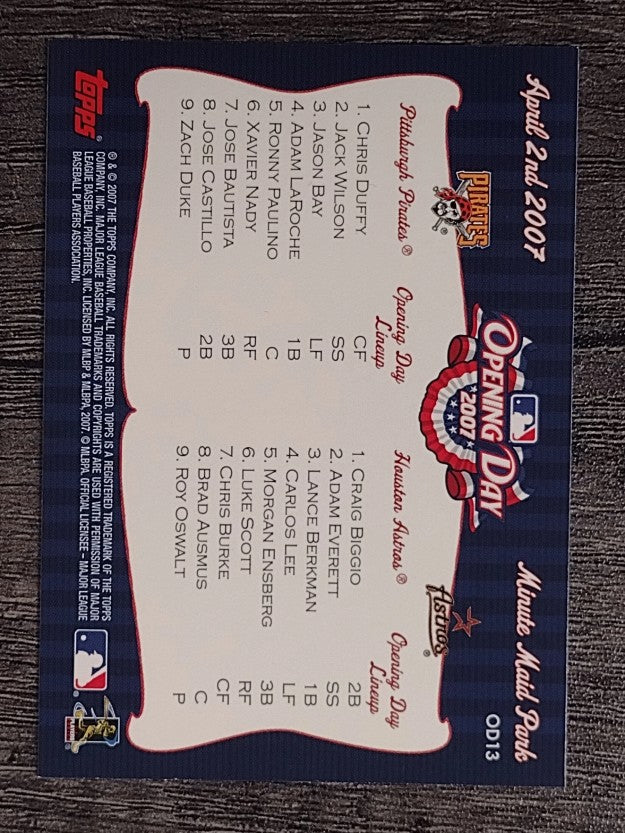 April 2nd 2007
Minute Maid Park
OD13
PIRATES
OPENING DAY
2007
Astros ®
Pittsburgh Pirates ®
Opening Day
Lineup
1. CHRIS DUFFY CF
2. JACK WILSON SS
3. JASON BAY LF
4. ADAM LAROCHE 1B
5. RONNY PAULINO C
6. XAVIER NADY RF
7. JOSE BAUTISTA 3B
8. JOSE CASTILLO 2B
9. ZACH DUKE P
Houston Astros ®
Opening Day
Lineup
1. CRAIG BIGGIO 2B
2. ADAM EVERETT SS
3. LANCE BERKMAN 1B
4. CARLOS LEE LF
5. MORGAN ENSBERG 3B
6. LUKE SCOTT RF
7. CHRIS BURKE CF
8. BRAD AUSMUS C
9. ROY OSWALT P
topps ®
® & © 2007 THE TOPPS COMPANY, INC. ALL RIGHTS RESERVED. TOPPS IS A REGISTERED TRADEMARK OF THE TOPPS
COMPANY, INC. MAJOR LEAGUE BASEBALL TRADEMARKS AND COPYRIGHTS ARE USED WITH PERMISSION OF MAJOR
LEAGUE BASEBALL PROPERTIES, INC. LICENSED BY MLBP & MLBPA, 2007 © MLBPA, OFFICIAL LICENSEE – MAJOR LEAGUE
BASEBALL PLAYERS ASSOCIATION.